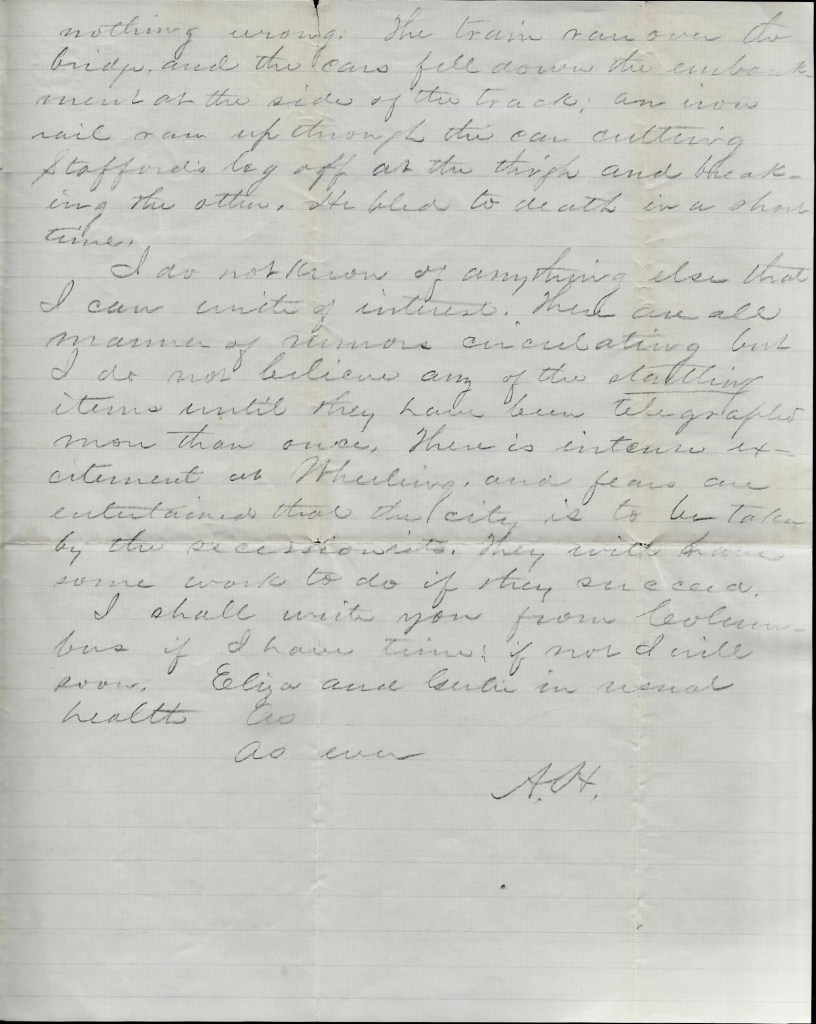 nothing wrong. The train ran over the
bridge, and the cars fell down the embank-
ment at the side of the track; an iron
rail ran up through the car cutting
Stafford's leg off at the thigh and break-
ing the other. He bled to death in a short
time.
I do not know of anything else that
I can write of interest. There are all
manner of rumors circulating but
I do not believe any of the startling
items until they have been telegraphed
more than once. There is intense ex-
citement at Wheeling, and fears are
entertained that the city is to be taken
by the secessionists. They will have
some work to do if they succeed.
I shall write you from Colum-
bus if I have time; if not I will
soon. Eliza and in usual
health
As ever
A.H.